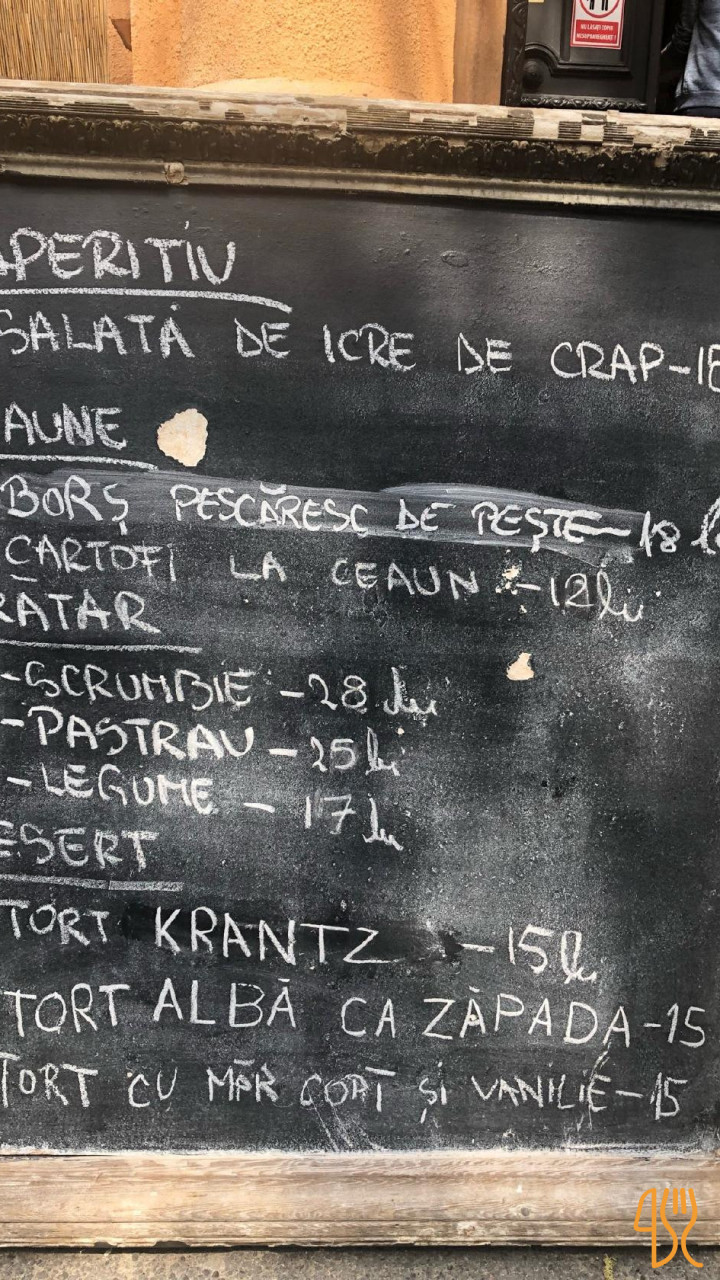 NU LĂSAȚI COPIII
NESUPRAVEGHEAȚI !
APERITIU
SALATĂ DE ICRE DE CRAP-18
AUNE
BORȘ PESCĂRESC DE PEȘTE-18 le
CARTOFI LA CEAUN -12 lei
RĂTAR
-SCRUMBIE -28 lei
-PASTRAU - 25 lei
-LEGUME - 17 lei
ESERT
TORT KRANTZ -15 lei
TORT ALBĂ CA ZĂPADA-15
TORT CU MĂR COPT ȘI VANILIE-15